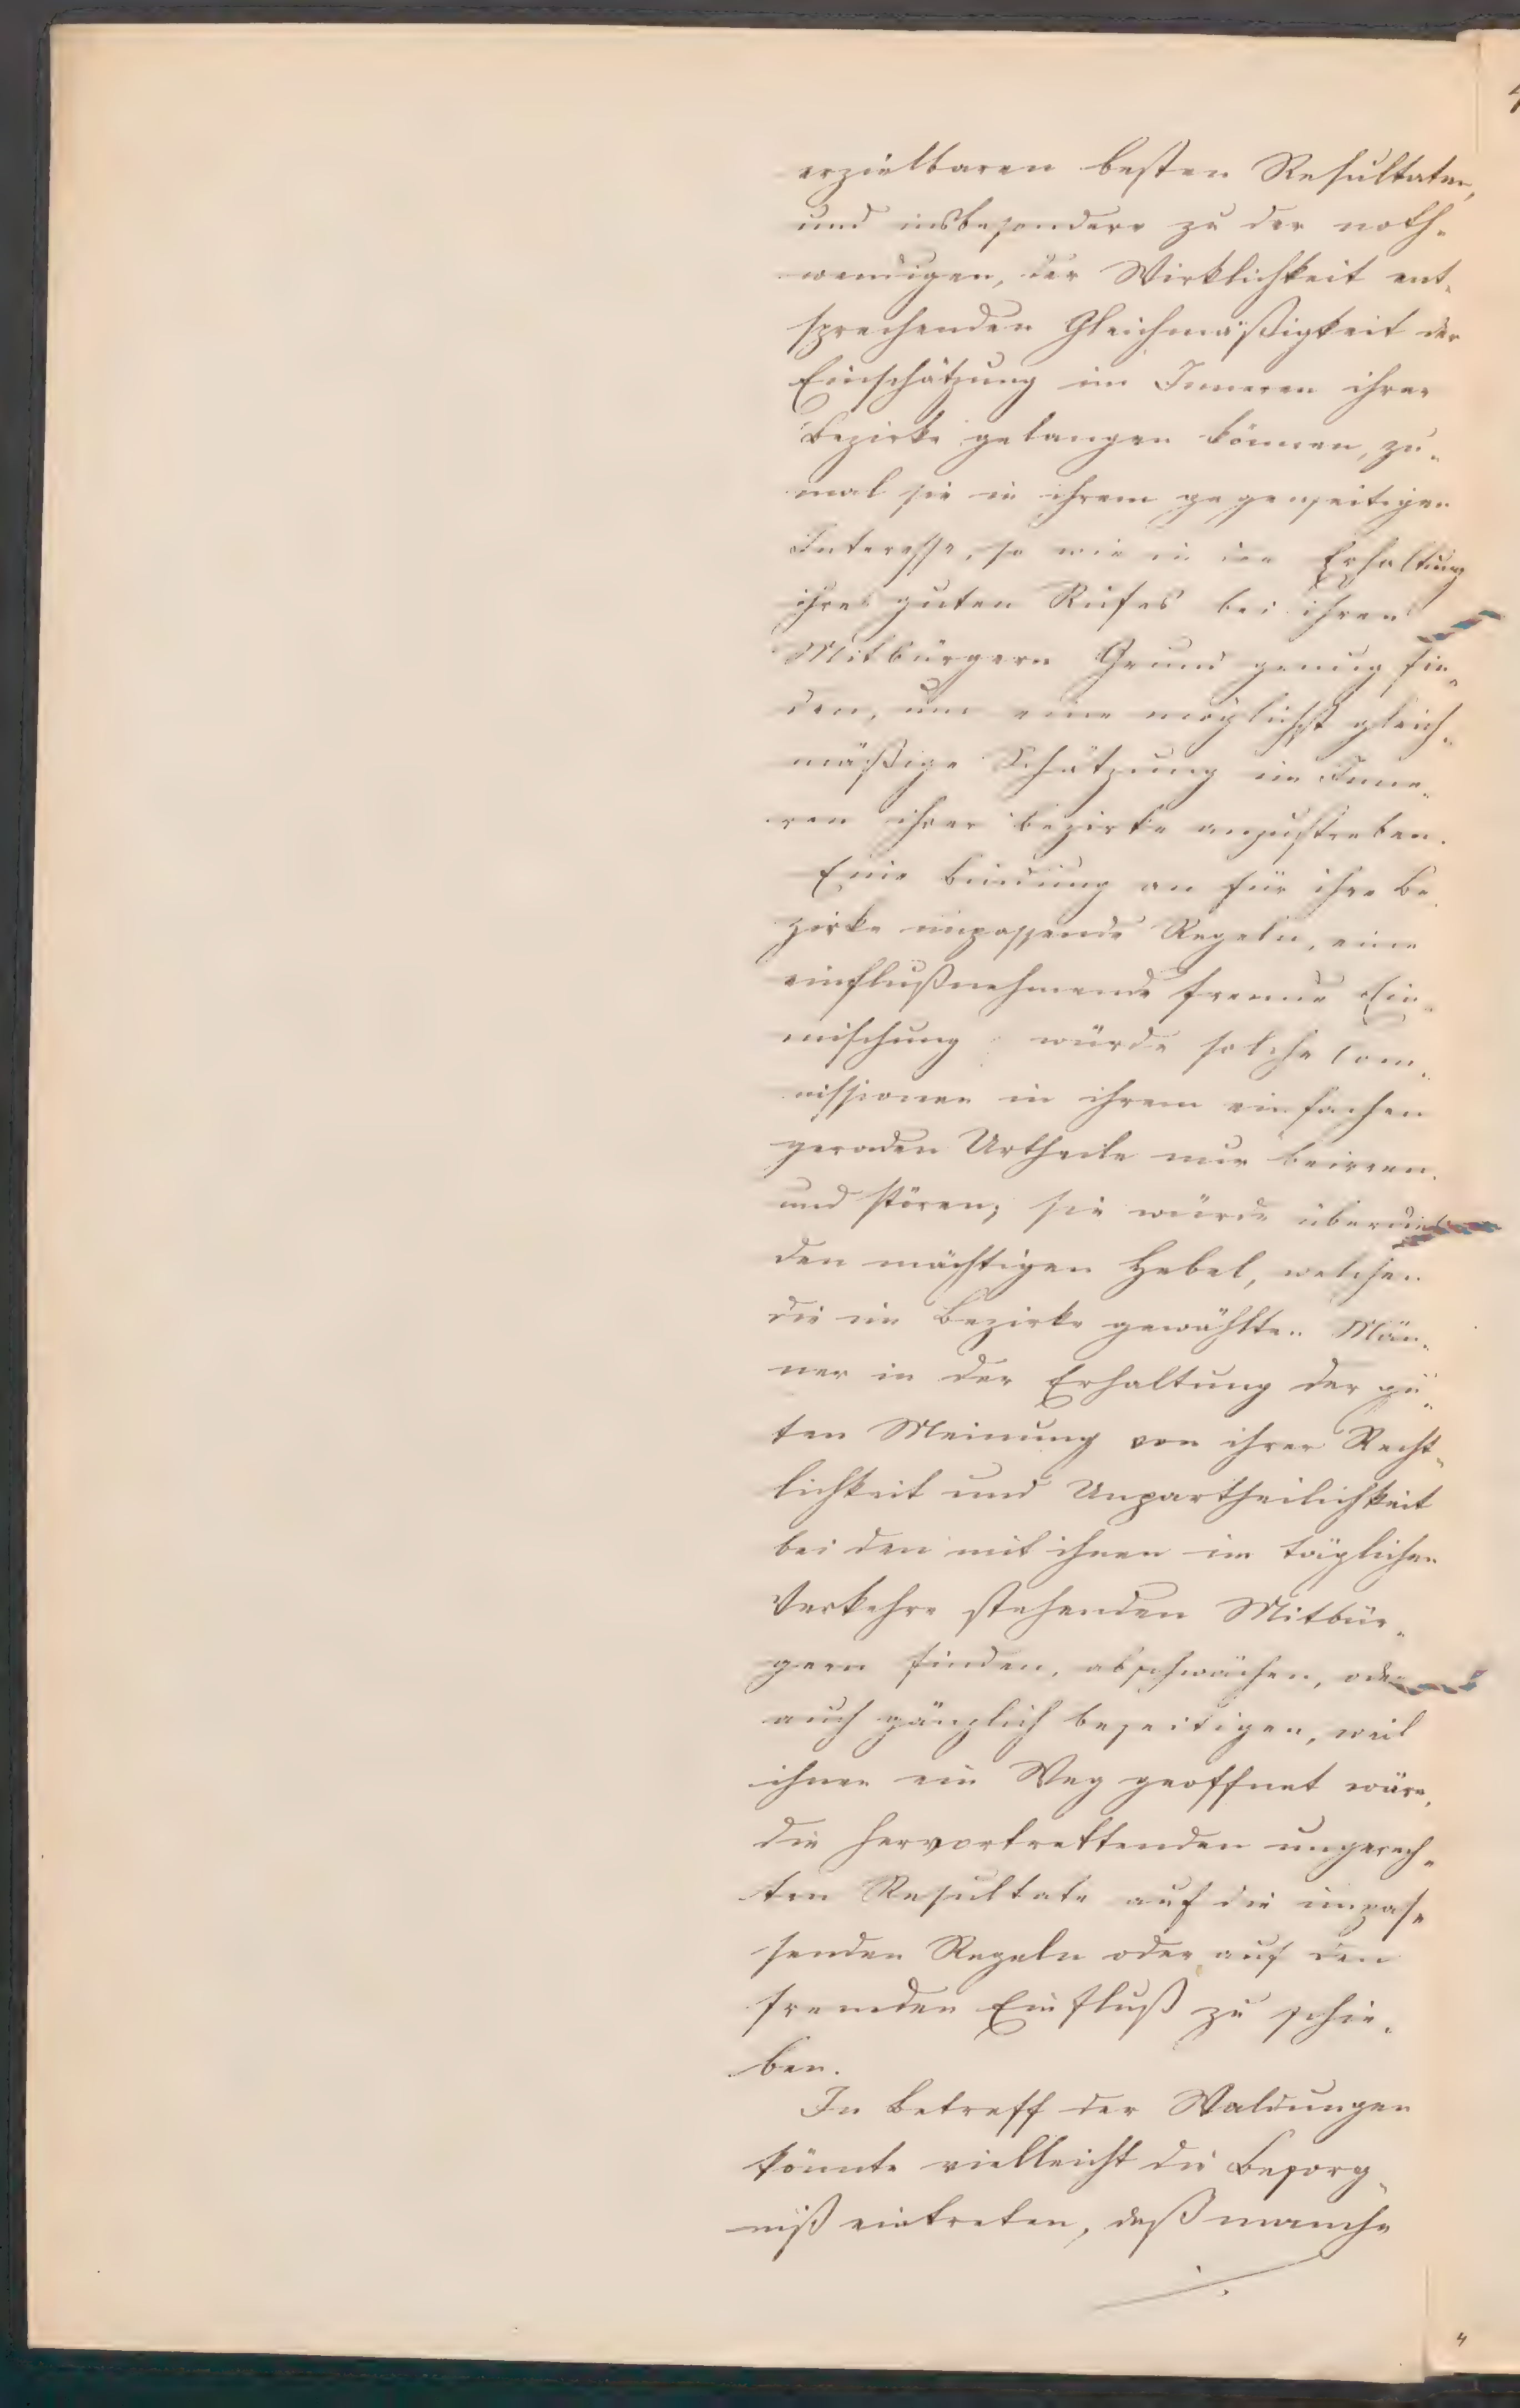 erzielbaren besten Resultaten,
und insbesondere zu der noth-
wendigen, der Wirklichkeit ent-
sprechenden Gleichmäßigkeit der
Einschätzung im Inneren ihrer
Bezirke gelangen können, zu-
mal sie in ihrem gegenseitigen
Interesse, so wie in der Erhaltung
ihres guten Rufes bei ihren
Mitbürgern Grund genug fin-
den, um eine möglichst gleich-
mäßige Schätzung im Inne-
ren ihrer Bezirke anzustreben.
Eine Bindung an für ihre Be-
zirke unpassende Regeln, eine
einflußnehmende fremde Ein-
mischung würde solche Com-
missionen in ihrem einfachen
geraden Urtheile nur beirren
und stören; sie würde überdieß
den mächtigen Hebel, welchen
die im Bezirke gewählten Män-
ner in der Erhaltung der gu-
ten Meinung von ihrer Recht-
lichkeit und Unpartheilichkeit
bei den mit ihnen im täglichen
Verkehre stehenden Mitbür-
gern finden, abschwächen, oder
auch gänzlich beseitigen, weil
ihnen ein Weg geoffnet wäre,
die hervortrettenden ungerech-
ten Resultate auf die unpas-
senden Regeln oder auf den
fremden Einfluß zu schie-
ben.
In Betreff der Waldungen
könnte vielleicht die Besorg-
niß eintreten, daß manche
./.
4